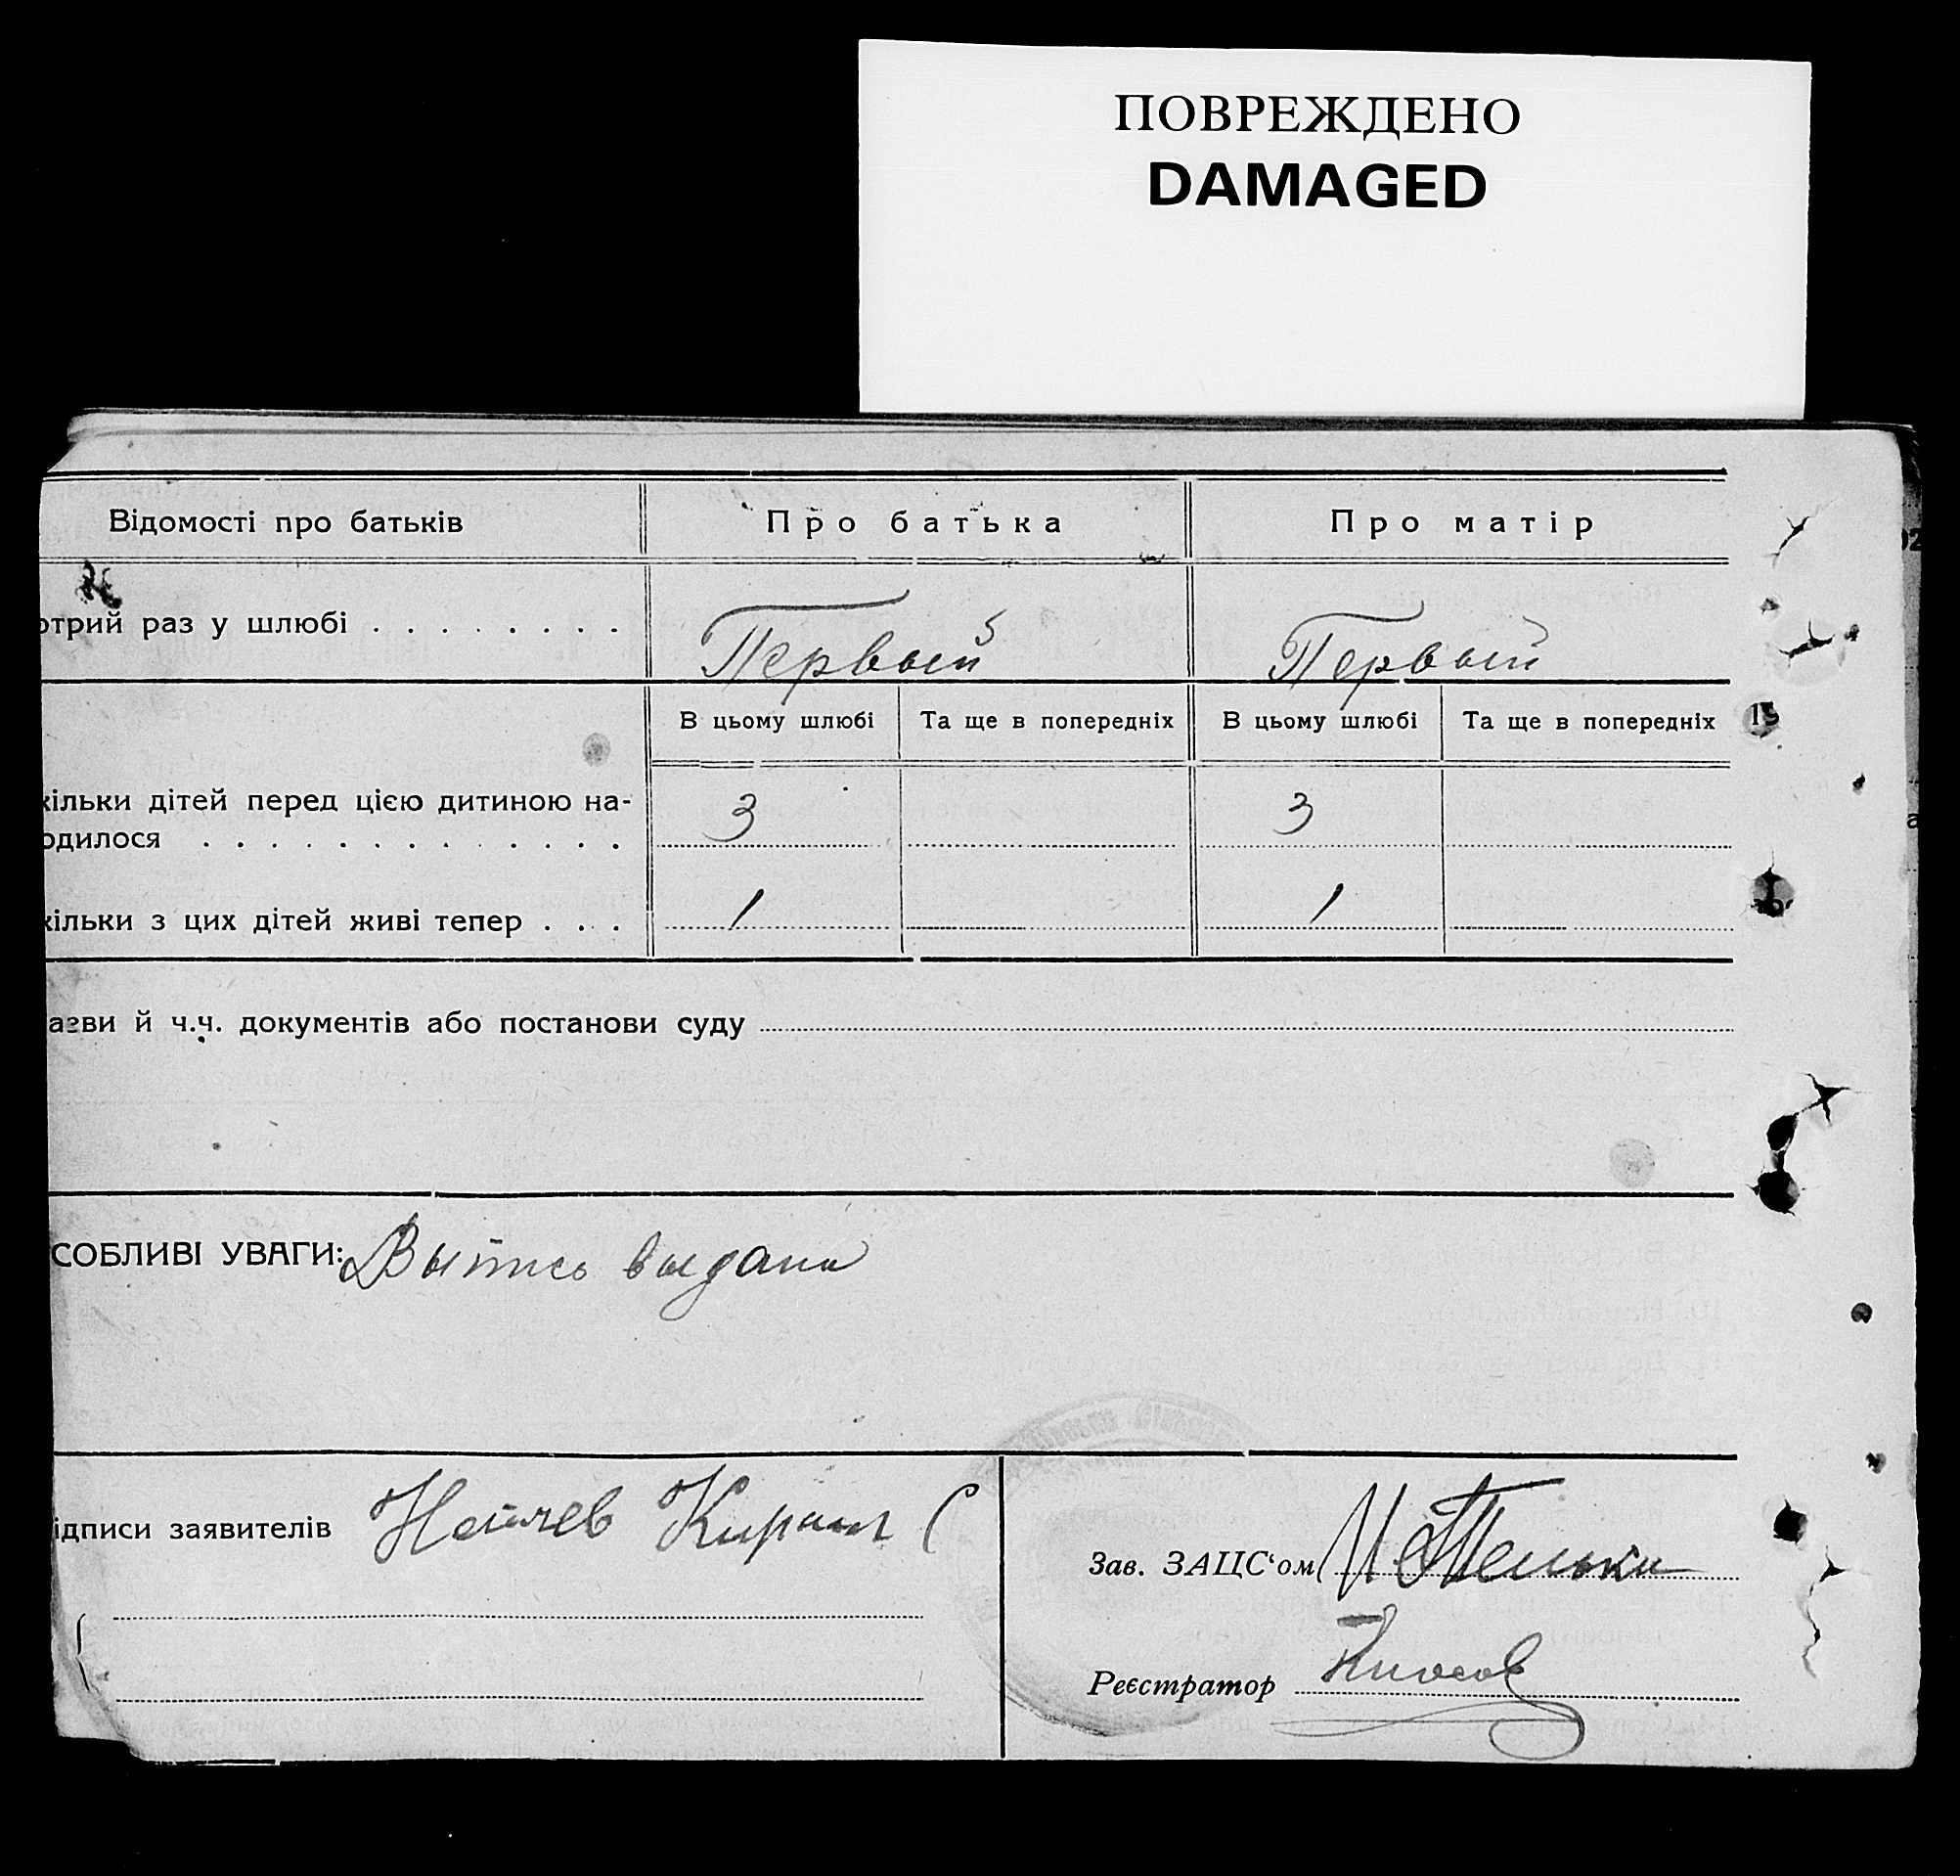 ПОВРЕЖДЕНО
DAMAGED
Відомості про батьків
Про батька
Про матір
отрий раз у шлюбі . . . . . . . .
Первый
Первый
В цьому шлюбі
Та ще в попередніх
В цьому шлюбі
Та ще в попередніх
кільки дітей перед цією дитиною на-
одилося . . . . . . . . . . . . .
3
3
кільки з цих дітей живі тепер . . .
1
1
азви й ч.ч. документів або постанови суду
СОБЛИВІ УВАГИ: Выпись выдана
ідписи заявителів
Зав. ЗАЦС‘ом
Реєстратор